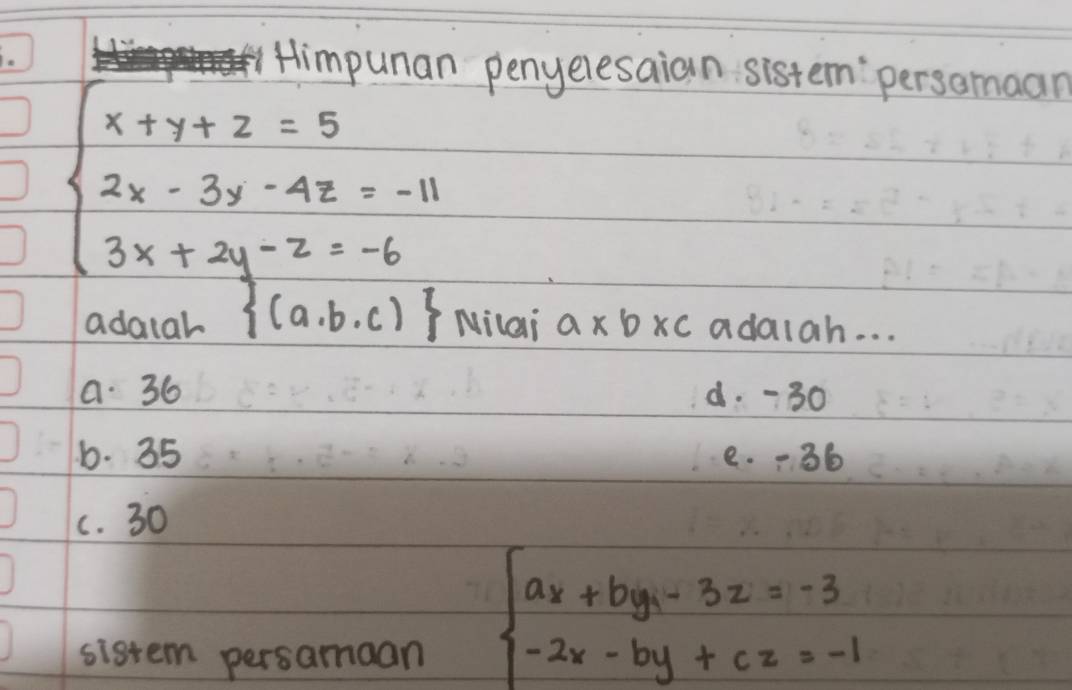 Himpunan penyelesaian sistem persamaan
x + y + z = 5
2x - 3y - 4z = -11
3x + 2y - z = -6
adalah {(a.b.c)} Nilai a x b x c adalah...
a. 36 d. -30
b. 35 e. -36
c. 30
ax + by - 3z = -3
sistem persamaan -2x - by + cz = -1